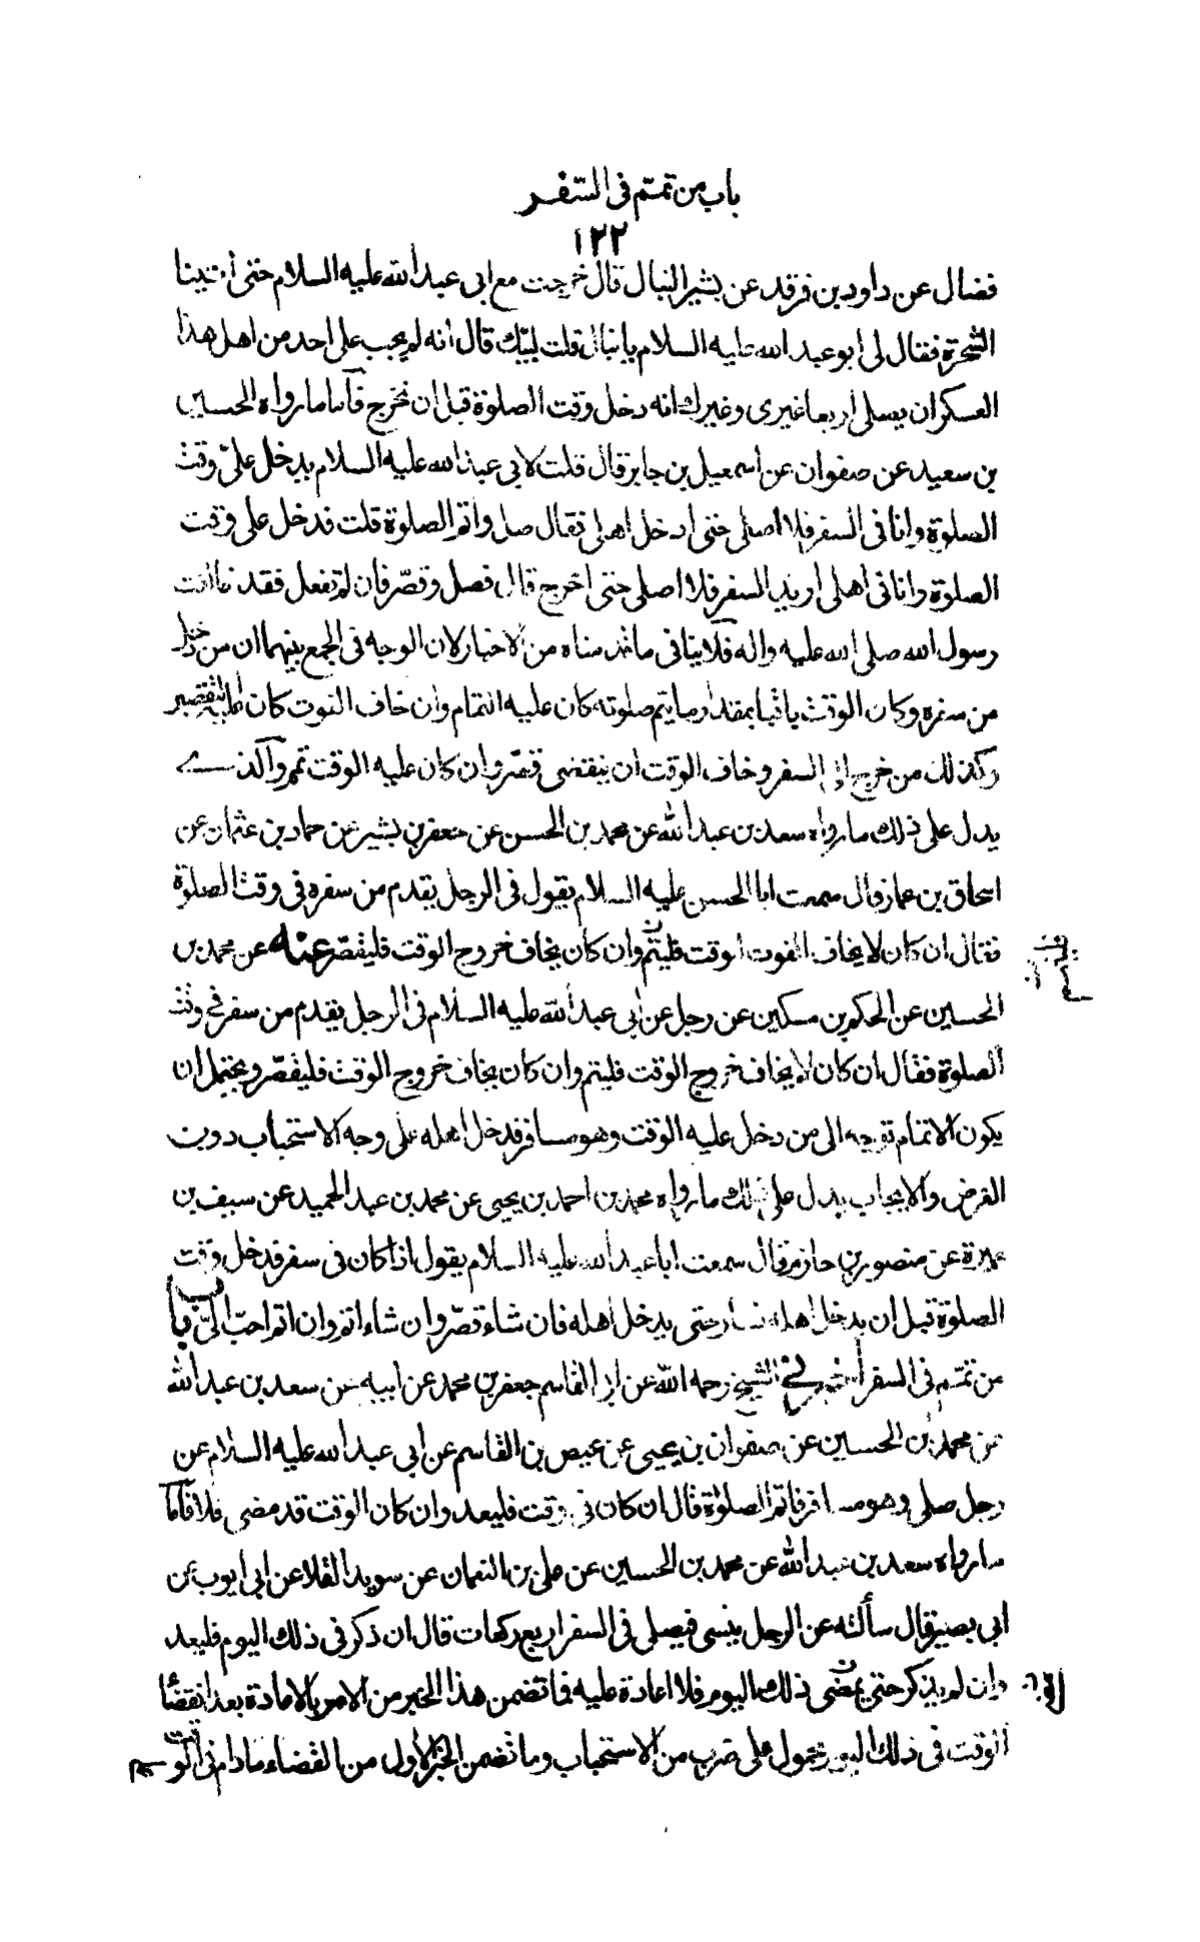 باب من تمّم فى السّفر
١٢٢
فضال عن داود بن فرقد عن بشير النبال قال خرجت مع ابى عبد الله عليه السلام حتى أتينا
الشجرة فقال لى ابو عبد الله عليه السلام يا نبال قلت لبيّك قال انه لم يجب على احد من اهل هذا
العسكر ان يصلى أربعا غيرى وغيرك انه دخل وقت الصلوة قبل ان نخرج فأما ما رواه الحسين
بن سعيد عن صفوان عن اسمعيل بن جابر قال قلت لابى عبد الله عليه السلام يدخل علىّ وقت
الصلوة وانا فى السفر فلا اصلى حتى ادخل اهلى فقال صل واتم الصلوة قلت فدخل على وقت
الصلوة وانا فى أهلى أريد السفر فلا اصلى حتى اخرج قال فصل وقصّر فان لم تفعل فقد خالفت
رسول الله صلى الله عليه واله فلا ينافى ما قدمناه من الاخبار لان الوجه فى الجمع بينهما ان من دخل
من سفره وكان الوقت باقيا بمقدار ما يتم صلوته كان عليه التمام وان خاف الفوت كان عليه التقصير
وكذلك من خرج إلى السفر وخاف الوقت ان ينقضى قصّر وان كان عليه الوقت تمم والذى
يدل على ذلك ما رواه سعد بن عبد الله عن محمد بن الحسن عن جعفر بن بشير عن حماد بن عثمان عن
اسحاق بن عمار قال سمعت ابا الحسن عليه السلام يقول فى الرجل يقدم من سفره فى وقت الصلوة
فقال ان كان لا يخاف الفوت الوقت فليتم وان كان يخاف خروج الوقت فليقصّر عنه عن محمد بن
الحسين عن الحكم بن مسكين عن رجل عن أبى عبد الله عليه السلام فى الرجل يقدم من سفر فى وقت
الصلوة فقال ان كان لا يخاف خروج الوقت فليتم وان كان يخاف خروج الوقت فليقصّر ويحتمل ان
يكون الاتمام توجه الى من دخل عليه الوقت وهو مسافر فدخل اهله على وجه الاستحباب دون
الفرض والايجاب يدل على ذلك ما رواه محمد بن احمد بن يحيى عن محمد بن عبد الحميد عن سيف بن
عميرة عن منصور بن حازم قال سمعت ابا عبد الله عليه السلام يقول اذا كان فى سفر فدخل وقت
الصلوة قبل ان يدخل اهله فسار حتى يدخل أهله فان شاء قصّر وان شاء اتم وان اتم احبّ الىّ باب
من تمّم فى السفر أخبرنى الشيخ رحمه الله عن ابى القاسم جعفر بن محمد عن ابيه عن سعد بن عبد الله
عن محمد بن الحسين عن صفوان بن يحيى عن عيص بن القاسم عن ابى عبد الله عليه السلام عن
رجل صلى وهو مسافر فاتم الصلوة قال ان كان فى وقت فليعد وان كان الوقت قد مضى فلا فأما
ما رواه سعد بن عبد الله عن محمد بن الحسين عن على بن النعمان عن سويد القلا عن ابى ايوب عن
ابى بصير قال سألته عن الرجل ينسى فيصلى فى السفر اربع ركعات قال ان ذكر فى ذلك اليوم فليعد
وان لم يذكر حتى يمضى ذلك اليوم فلا اعادة عليه فما تضمن هذا الخبر من الامر بالاعادة بعد انقضاء
الوقت فى ذلك اليوم محمول على ضرب من الاستحباب وما تضمن الخبر الأول من القضاء ما دام فى الوقت